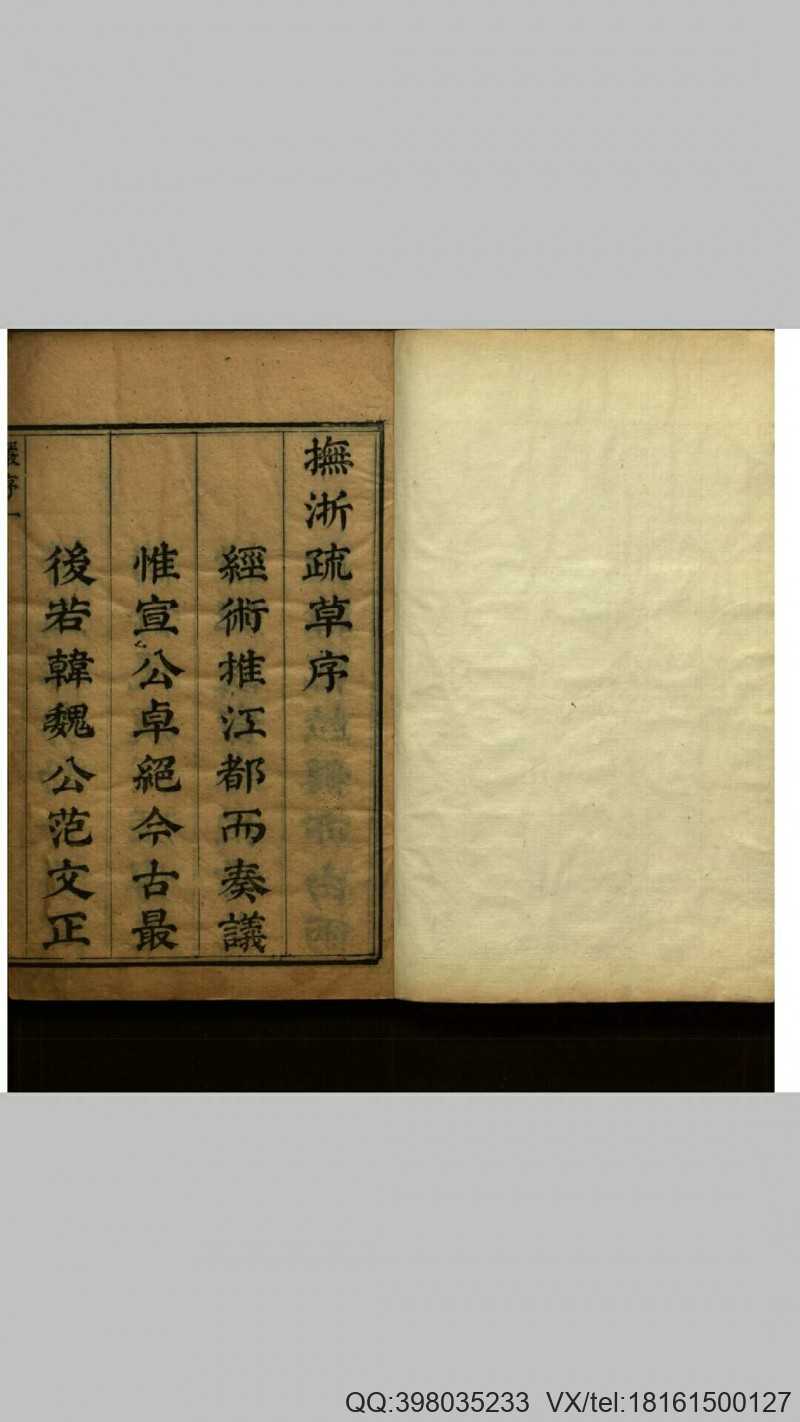 撫浙疏草序
經術推江都而奏議
惟宣公卓絕今古最
後若韓魏公范文正
序一
QQ:398035233 VX/tel:18161500127